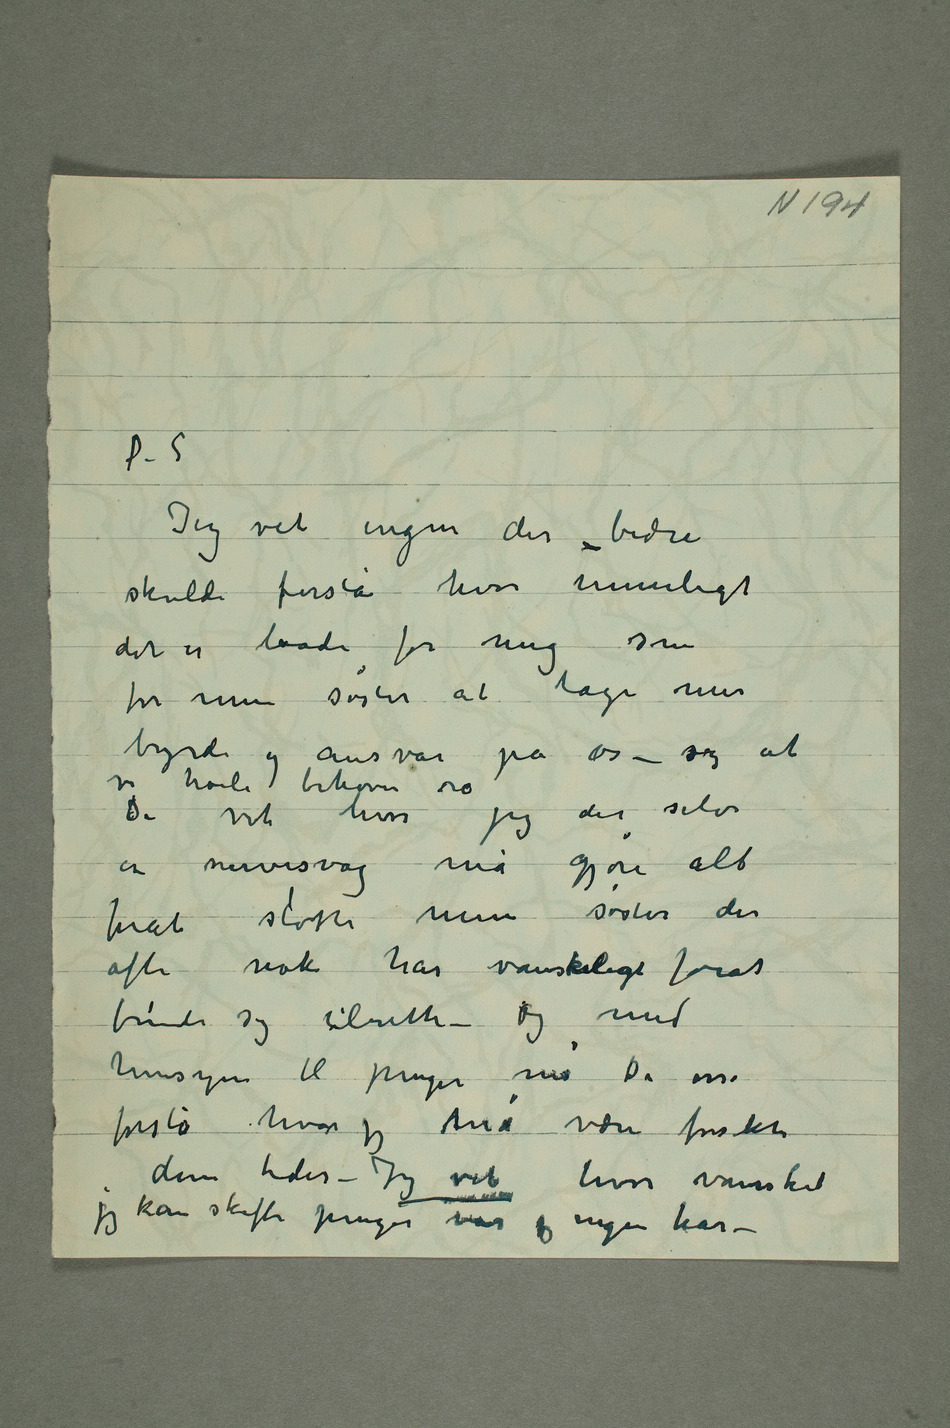 N 194
P. S
Jeg vet ingen der bedre
skulde forstå hvor umuligt
det er baade for mig som
for min søster at tage mer
byrde og ansvar på os – og at
vi høili behøver ro
De vet hvor jeg der selv
er nervesvag må gjøre alt
forat støtte min søster der
ofte nok har vanskeligt forat
finde sig tilrette – Og med
hensyn til penger må De osse
forstå hvor jeg må være forsikti
denne tider – Jeg vet hvor vanskeli
jeg kan skaffe penger når jeg ingen har –